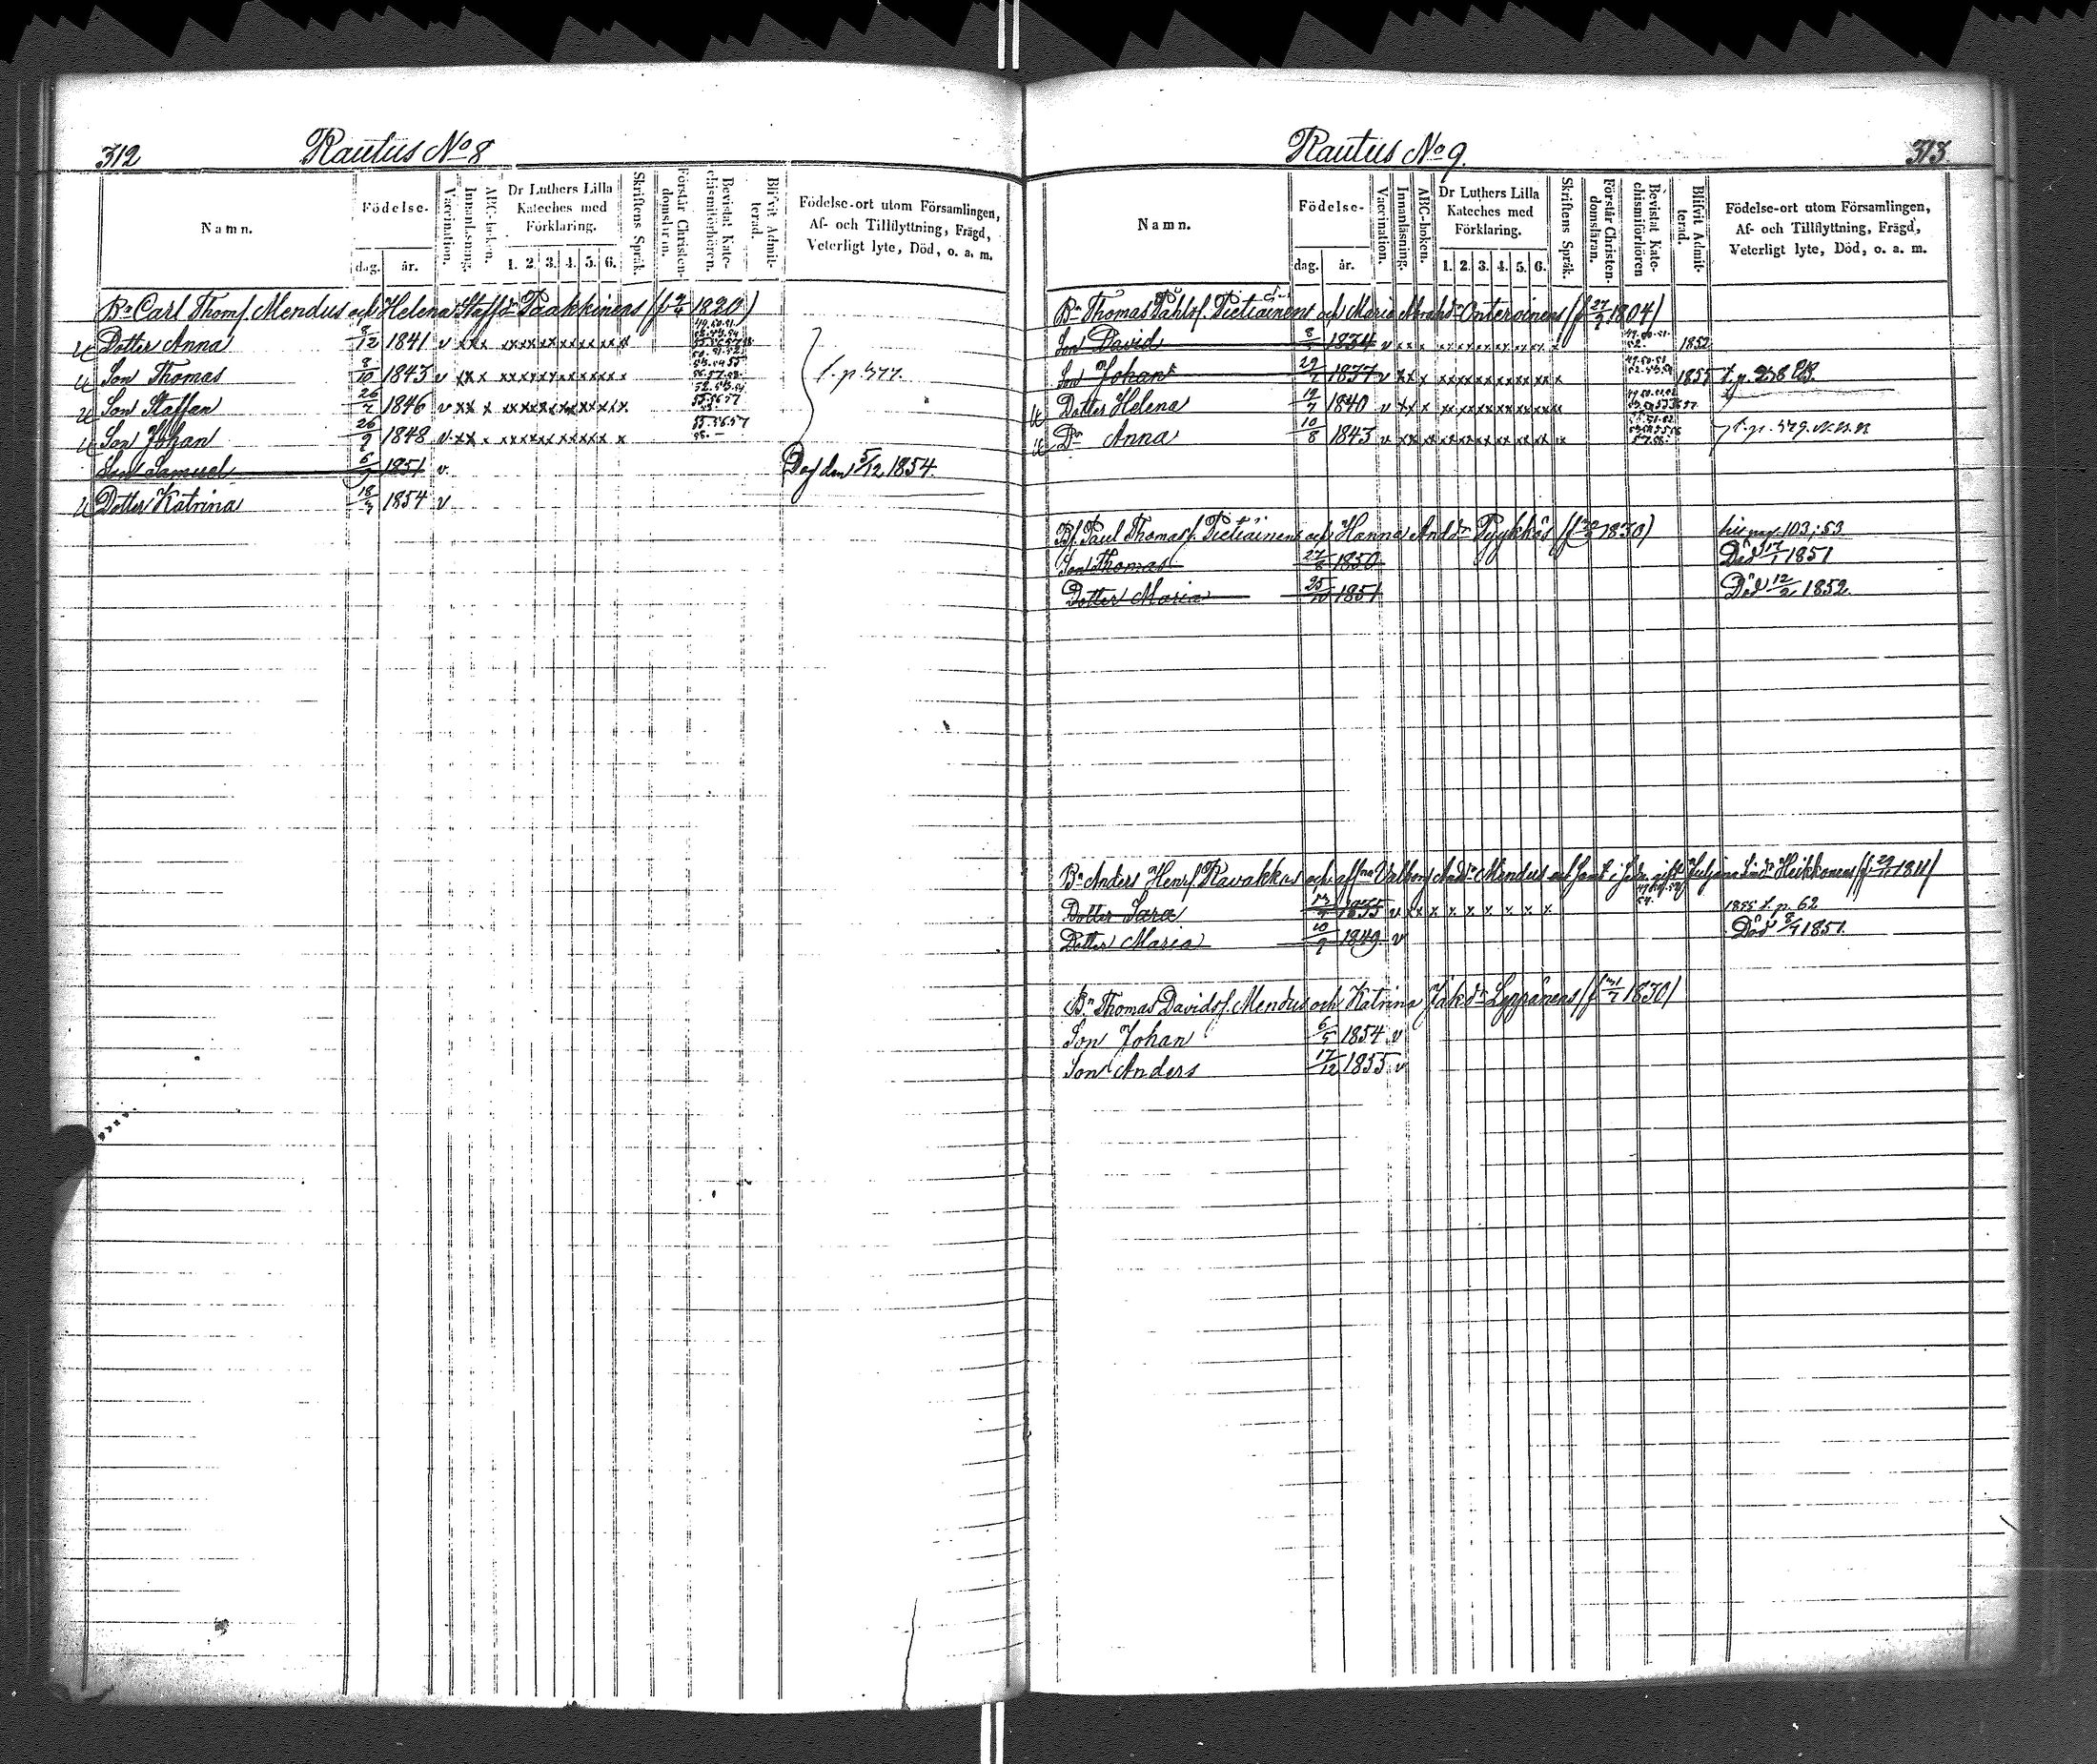 312
Rautus No 8
Namn.
Födelse-
dag.
år.
Vaccination.
Innanläsning.
ABC-boken.
Dr Luthers Lilla
Kateches med
Förklaring.
1. 2. 3. 4. 5. 6.
Skriftens Språk.
Förstår Christen-
domsläran.
Bevistat Kate-
chismiförhören.
Blifvit Admit-
terad.
Födelse-ort utom Församlingen,
Af- och Tillflyttning, Frägd,
Veterligt lyte, Död, o. a. m.
Bn Carl Thomf. Mendus och Helena Staffdr Paakkinens (f 1820)
Dotter Anna 8/12 1841 v xxx xxxxxxxxxxxx
Son Thomas 8/10 1843 v xxx xxxxxxxxxxxx t. p. 377.
Son Staffan 26/7 1846 v xx x xxxxxxxxxxxx
Son Johan 26/9 1848 v xx x xxxxxxxxxx x
Son Samuel 1851 v. Död den 5/12 1854.
Dotter Katrina 18/3 1854 v
Rautus No 9.
313.
Namn.
Födelse-
dag.
år.
Vaccination.
Innanläsning.
ABC-boken.
Dr Luthers Lilla
Kateches med
Förklaring.
1. 2. 3. 4. 5. 6.
Skriftens Språk.
Förstår Christen-
domsläran.
Bevistat Kate-
chismiförhören
Blifvit Admit-
terad.
Födelse-ort utom Församlingen,
Af- och Tillflyttning, Frägd,
Veterligt lyte, Död, o. a. m.
Bn Thomas Påhlsf. Pietiäinens och Maria Abrahdr Onteroinens (f 27/ 1804)
Son David 1834 v xx x 1852
Son Johan 1837 v xx x 1855 t. p. 258
Dotter Helena 1840 v xx x
Dr Anna 10/8 1843 v t. p. 379.
Bf. Paul Thomasf. Pietiäinens och Hanna Anddr Pyykkös (f 1830) 103; 53
Son Thomas 27/8 1850 Död 17/1 1851
Dotter Maria 25/10 1851 Död 12/2 1852.
Bn Anders Henrf. Kavakkus och Valborg Anddr Mendus gift Juljana Heikkonens (f 1811)
Dotter Sara 1835 v xx x x x x x x x 1855 t. p. 62
Dotter Maria 10/9 1849 v Död 8/7 1851.
Bn Thomas Davidsf. Mendus och Katrina Jakdr Leppänens (f 1830)
Son Johan 6/5 1854 v
Son Anders 17/12 1855 v